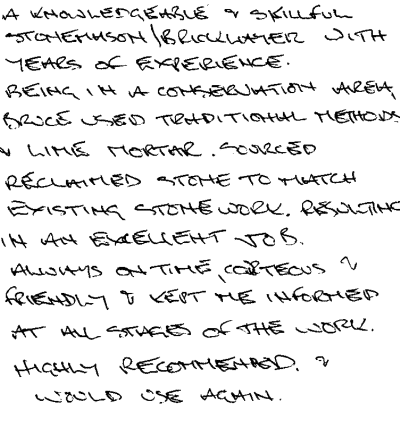 A KNOWLEDGEABLE & SKILLFUL
STONEMASON/BRICKLAYER WITH
YEARS OF EXPERIENCE.
BEING IN A CONSERVATION AREA,
BRUCE USED TRADITIONAL METHODS
& LIME MORTAR. SOURCED
RECLAIMED STONE TO MATCH
EXISTING STONEWORK. RESULTING
IN AN EXCELLENT JOB.
ALWAYS ON TIME, CORTEOUS &
FRIENDLY & KEPT ME INFORMED
AT ALL STAGES OF THE WORK.
HIGHLY RECOMMENDED. &
WOULD USE AGAIN.